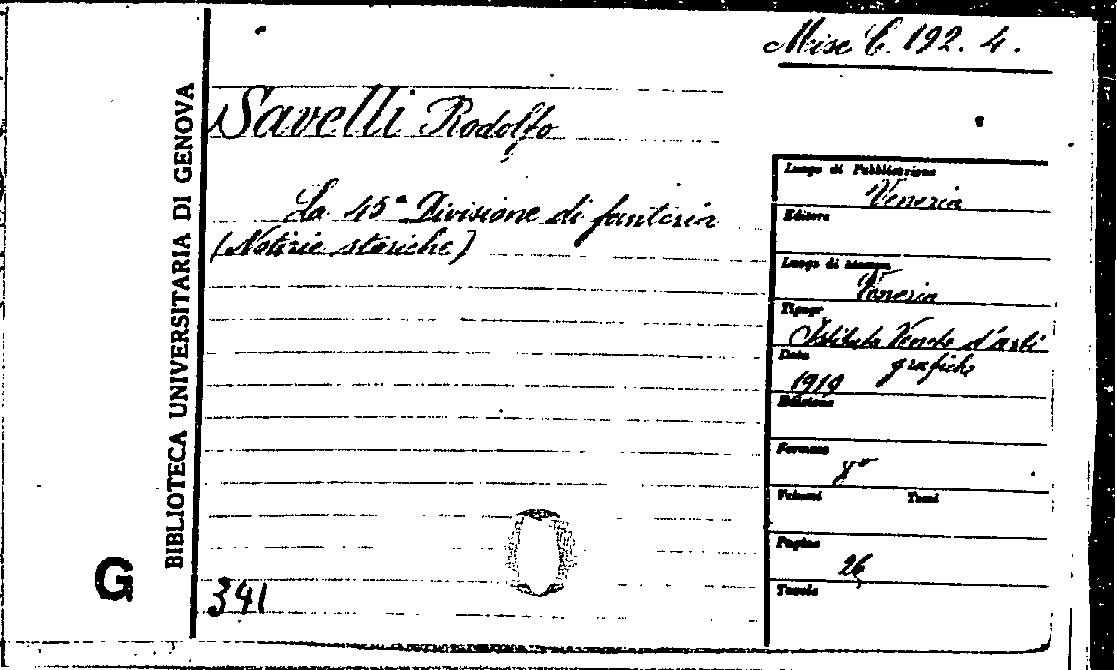 Misc C. 192. 4.
Savelli Rodolfo
La 45ª Divisione di fanteria
(Notizie storiche)
Luogo di Pubblicazione
Venezia
Editore
Luogo di stampa
Venezia
Tipogr
Istituto Veneto d'arti
grafiche
Data
1919
Edizione
Formato
8°
Volumi Tomi
Pagine
26
Tavole
341
BIBLIOTECA UNIVERSITARIA DI GENOVA
G